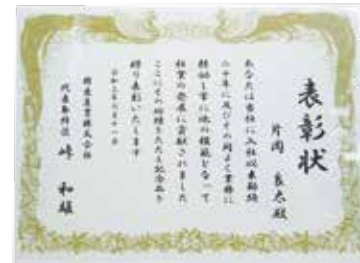 表彰状
片岡 良太殿
あなたは当社に入社以来勤続
二十年に及びその間よく業務に
精励し常に他の模範となって
社業の発展に貢献されました
ここにその功績をたたえ記念品を
贈り表彰いたします
産業株式会社
代表取締役 峰 和雄